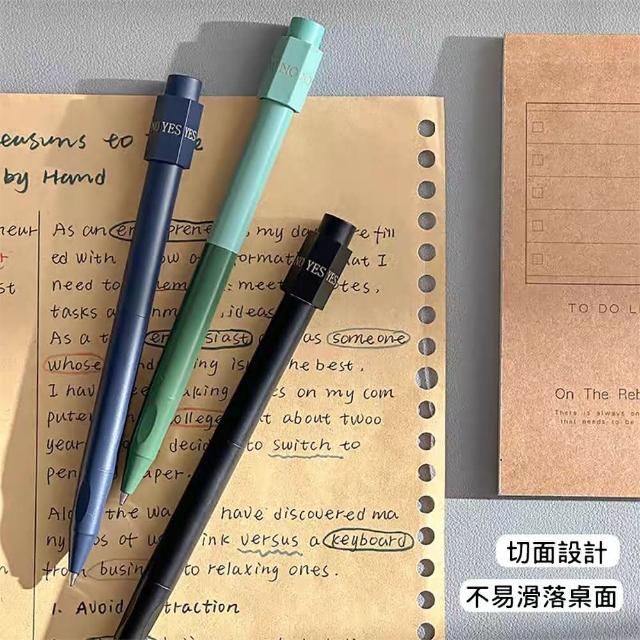 easuns to
by Hand
NO YES YES
NO
NO YES YES
neur
st
As an my day are fill
ed with ow ormat at I
need to meet otes,
tasks ideas
As a t en siast as someone
whose ing isn the best.
I ha aking s on my com
puter college t about twoo
year decid to switch to
pen aper.
Alo the wa have discovered ma
ny of u ink versus a keyboard
from busin to relaxing ones.
1. Avoid traction
TO DO LI
On The Reb
There is always on
that needs to be
切面設計
不易滑落桌面